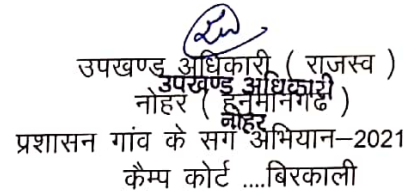 उपखण्ड अधिकारी ( राजस्व )
उपखण्ड अधिकारी
नोहर ( हनुमानगढ )
नोहर
प्रशासन गांव के सग अभियान–2021
कैम्प कोर्ट ....बिरकाली